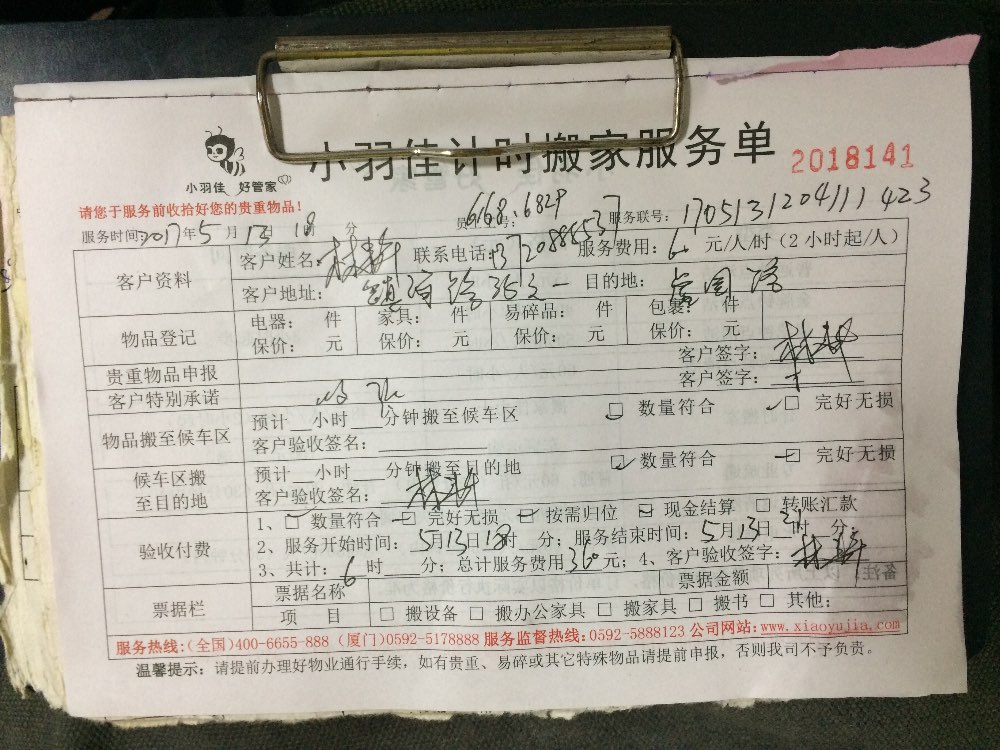 小羽佳计时搬家服务单 2018141
小羽佳 好管家
请您于服务前收拾好您的贵重物品!
服务时间:2017年5月13日18 分 员工工号: 668、6829 服务联号: 1705131204111423
客户资料 客户姓名: 联系电话: 服务费用: 60 元/人/时(2小时起/人)
客户地址: 目的地:
物品登记 电器: 件 家具: 件 易碎品: 件 包裹: 件
保价: 元 保价: 元 保价: 元 保价: 元
客户签字:
贵重物品申报 客户签字:
客户特别承诺
物品搬至候车区 预计__小时___分钟搬至候车区 □ 数量符合 □ 完好无损
客户验收签名:
候车区搬至目的地 预计__小时___分钟搬至目的地 □ 数量符合 □ 完好无损
客户验收签名:
验收付费 1、□ 数量符合 □ 完好无损 □ 按需归位 □ 现金结算 □ 转账汇款
2、服务开始时间: 5月13日18时 分; 服务结束时间: 5月13日 时 分;
3、共计: 6 时 分; 总计服务费用360元; 4、客户验收签字:
票据栏 票据名称 票据金额
项 目 □ 搬设备 □ 搬办公家具 □ 搬家具 □ 搬书 □ 其他:
服务热线:(全国)400-6655-888 (厦门)0592-5178888 服务监督热线:0592-5888123 公司网站:www.xiaoyujia.com
温馨提示: 请提前办理好物业通行手续,如有贵重、易碎或其它特殊物品请提前申报,否则我司不予负责。